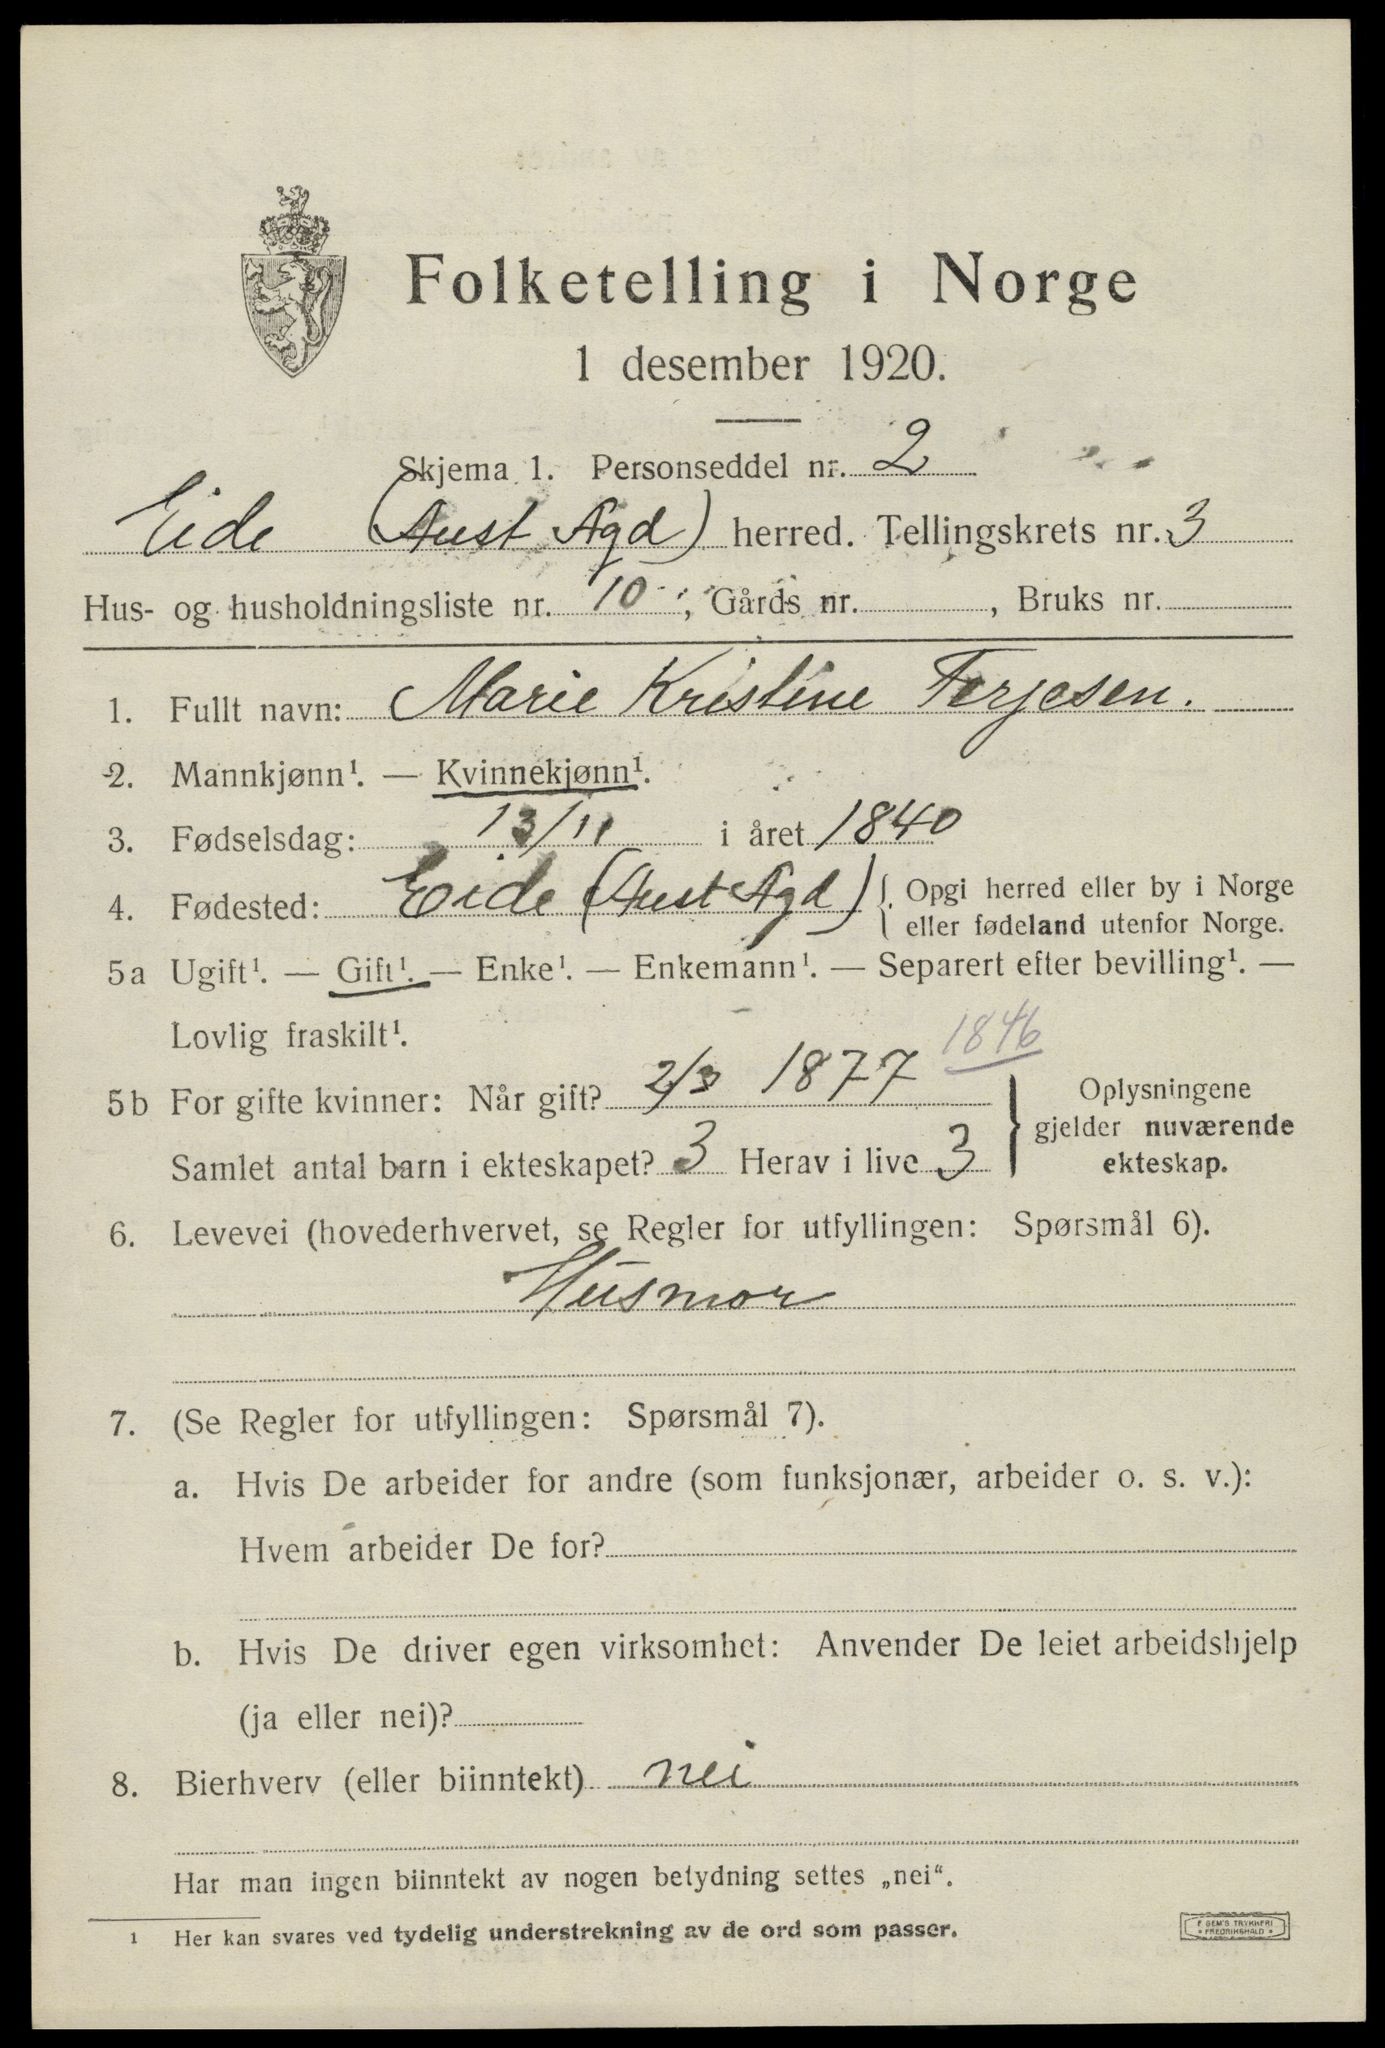 Folketelling i Norge
1 desember 1920.
Skjema 1. Personseddel nr. 2
Eide (Aust Agd) herred. Tellingskrets nr. 3
Hus- og husholdningsliste nr. 10, Gårds nr. , Bruks nr.
1. Fullt navn: Marie Kristine Terjesen.
2. Mannkjønn¹. — Kvinnekjønn¹.
3. Fødselsdag: 13/11 i året 1840
4. Fødested: Eide (Aust Agd) { Opgi herred eller by i Norge
eller fødeland utenfor Norge.
5a Ugift¹. — Gift¹. — Enke¹. — Enkemann¹. — Separert efter bevilling¹. —
Lovlig fraskilt¹.
1846
5b For gifte kvinner: Når gift? 2/3 1877
Samlet antal barn i ekteskapet? 3 Herav i live 3
} Oplysningene
gjelder nuværende
ekteskap.
6. Levevei (hovederhvervet, se Regler for utfyllingen: Spørsmål 6).
Husmor
7. (Se Regler for utfyllingen: Spørsmål 7).
a. Hvis De arbeider for andre (som funksjonær, arbeider o. s. v.):
Hvem arbeider De for?
b. Hvis De driver egen virksomhet: Anvender De leiet arbeidshjelp
(ja eller nei)?
8. Bierhverv (eller biinntekt) nei
Har man ingen biinntekt av nogen betydning settes „nei“.
1 Her kan svares ved tydelig understrekning av de ord som passer.
F SEM'S TRYKKERI
FREDRIKSHALD